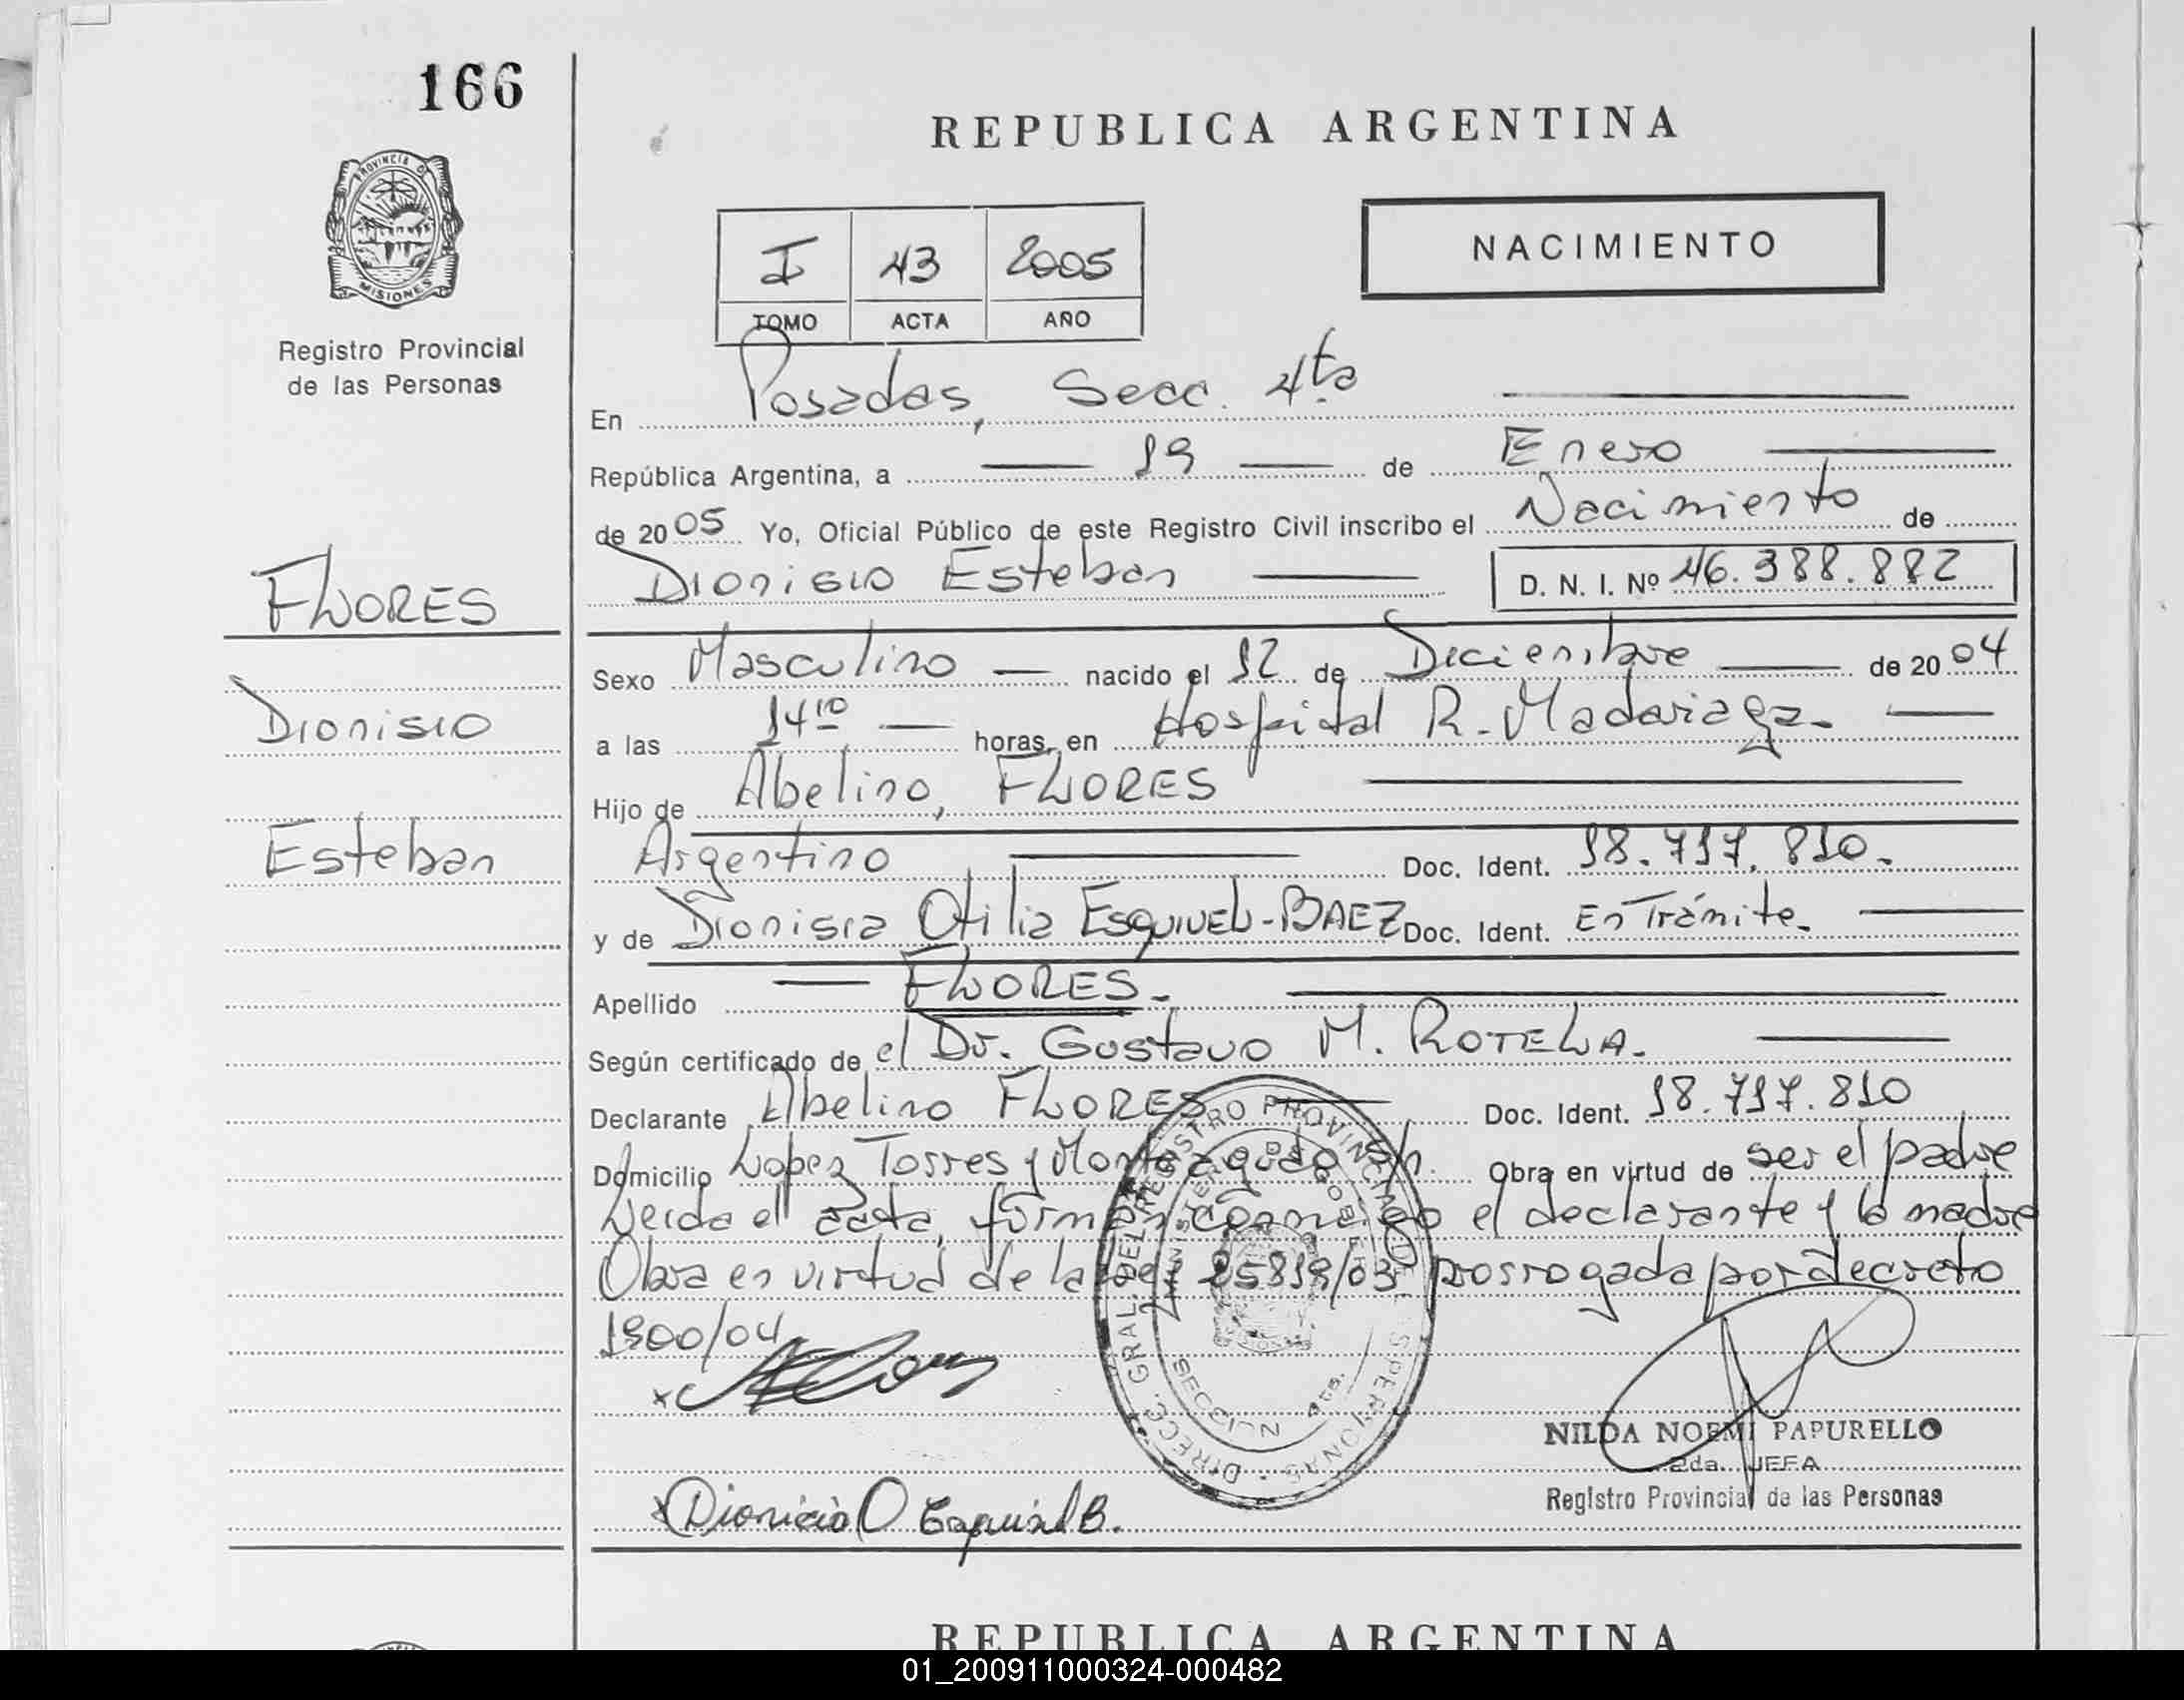 166
PROVINCIA DE
MISIONES
Registro Provincial
de las Personas
REPUBLICA ARGENTINA
I 43 2005
TOMO ACTA AÑO
NACIMIENTO
En Posadas, Secc. 4ta
República Argentina, a 19 de Enero
de 2005 Yo, Oficial Público de este Registro Civil inscribo el Nacimiento de
Dionisio Esteban D. N. I. Nº 46.388.882
FLORES
Dionisio
Esteban
Sexo Masculino nacido el 12 de Diciembre de 2004
a las 14 10 horas, en Hospital R. Madariaga.
Hijo de Abelino, FLORES
Argentino Doc. Ident. 18.717.810.
y de Dionisia Otilia ESQUIVEL-BAEZ Doc. Ident. En Trámite.
Apellido FLORES.
Según certificado de el Dr. Gustavo M. ROTELA.
Declarante Abelino FLORES Doc. Ident. 18.717.810
Domicilio Lopez Torres y Monteagudo s/n. Obra en virtud de ser el padre
Leida el acta, firman conmigo el declarante y la madre
Obra en virtud de la ley 25819/03 prorrogada por decreto
1900/04
DIRECC. GRAL. DEL REGISTRO PROVINCIAL DE LAS PERSONAS
MINISTERIO DE GOBIERNO
SECCION 4ta.
NILDA NOEMI PAPURELLO
2da. JEFA
Registro Provincial de las Personas
x Dionicia O Esquivel B.
REPUBLICA ARGENTINA
01_200911000324-000482